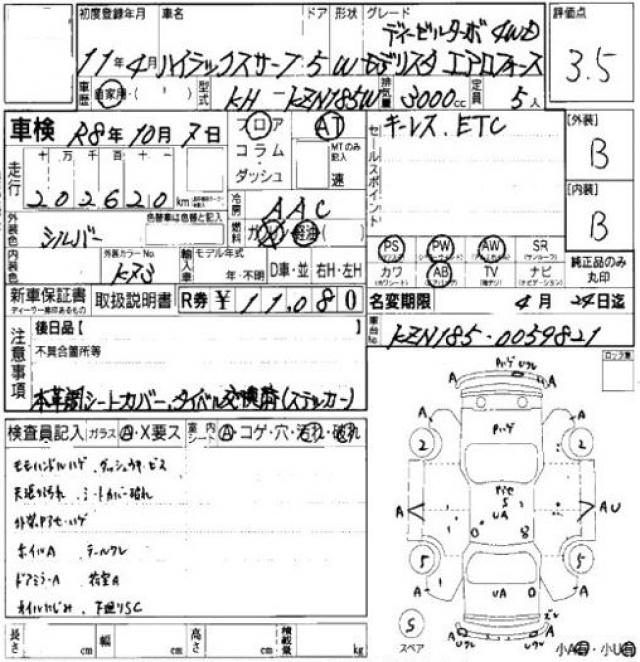 初度登録年月 車名 ドア 形状 グレード 評価点
ディーゼルターボ 4WD
11年4月 ハイラックスサーフ 5 W モデリスタ エアロフォース 3.5
車歴 自家用・( ) 型式 KH - KZN185W 排気量 3000cc 定員 5人
車検 R8年10月7日 フロア AT キーレス、ETC [外装]
コラム・ MTのみ記入 B
ダッシュ 速 セールスポイント
走行 十 万 千 百 十
202620 km [内装]
冷房 AAC B
外装色 シルバー 色替車は色替と記入 燃料 ガソリン 軽油 ( )
PS PW AW SR 純正品のみ丸印
内装色 外装カラーNo. KP3 輸入車 モデル年式 年・不明 D車・並 右H・左H
カワ AB TV ナビ
新車保証書 取扱説明書 R券 ¥ 11,080 名変期限 4月24日迄
ディーラー印あるもの
注意事項 後日品【 】 車台No. KZN185-0059821
不具合箇所等 ロック車
本革調シートカバー、タイベル交換済(ステッカー)
検査員記入 ガラス A・X要ス 室内 シート A・コゲ・穴・汚れ・破れ
モモハンドルハゲ、ダッシュウキ・ビス
天張り汚れ、シートカバー破れ
外装Pアセ・ハゲ
ホイルA テールワレ
ドアミラーA 荷室A
オイルにじみ 下廻りSC
長さ cm 幅 cm 高さ cm 積載量 kg
Pハゲ Uワレ
A A
A A
2 Pハゲ 2
Pアセ
S
A UA A U
5 5
A UA A
S
スペア
A Uワレ Uワレ A
小A・小U